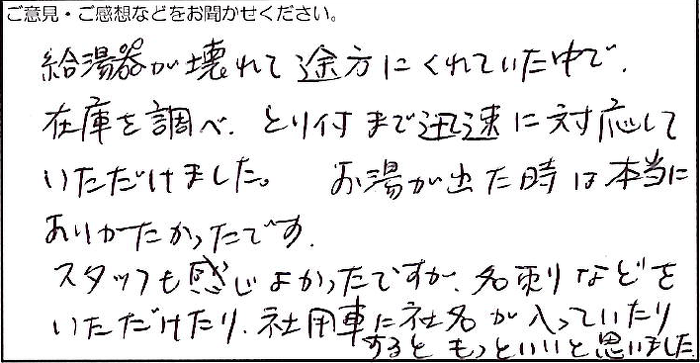 ご意見・ご感想などをお聞かせください。
給湯器が壊れて途方にくれていた中で、
在庫を調べ、とり付まで迅速に対応して
いただけました。 お湯が出た時は本当に
ありがたかったです。
スタッフも感じよかったですが、名刺りなどを
いただけたり、社用車に社名が入っていたり
するともっといいと思いました